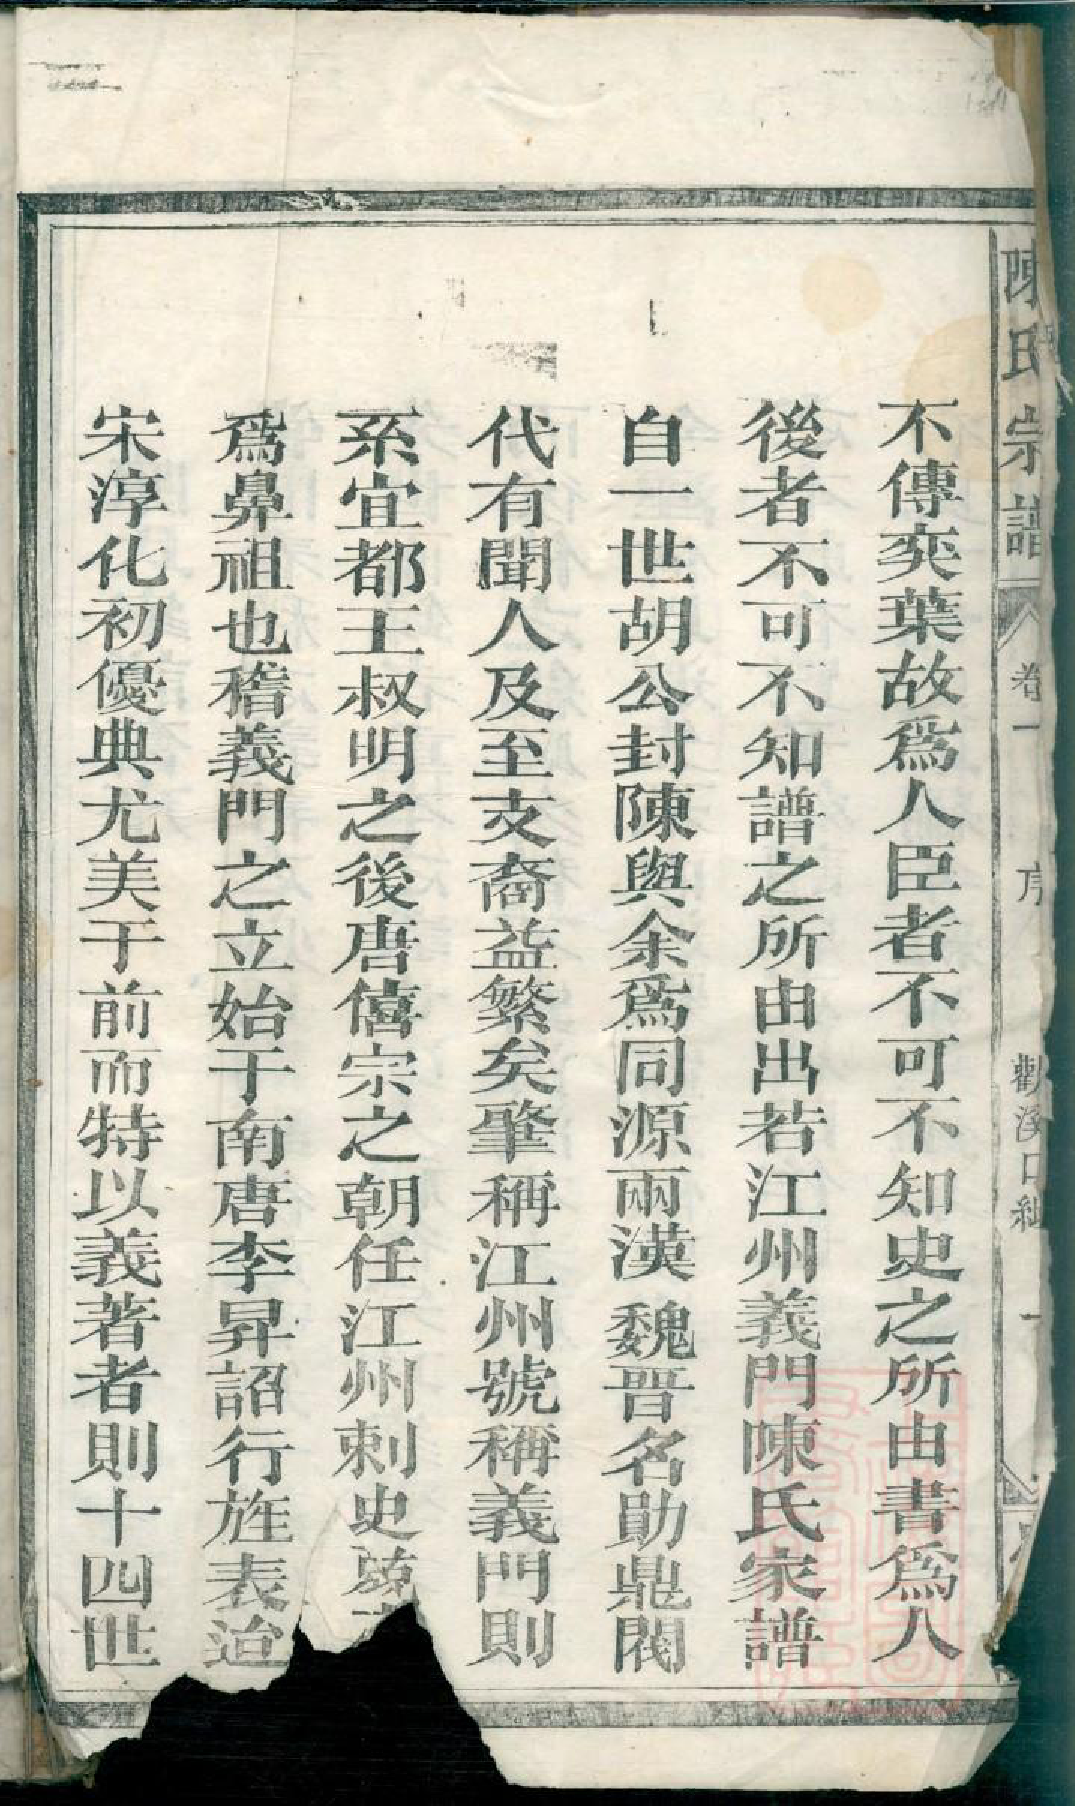 陳氏宗譜 卷一 序 勸溪口 一
不傳奕葉故爲人臣者不可不知史之所由書爲人
後者不可不知譜之所由出若江州義門陳氏家譜
自一世胡公封陳與余爲同源兩漢魏晋名勛鼎閥
代有聞人及至支裔益繁矣肇稱江州號稱義門則
系宜都王叔明之後唐僖宗之朝任江州刺史
爲鼻祖也稽義門之立始于南唐李昇詔行旌表迨
宋淳化初優典尤美于前而特以義著者則十四世